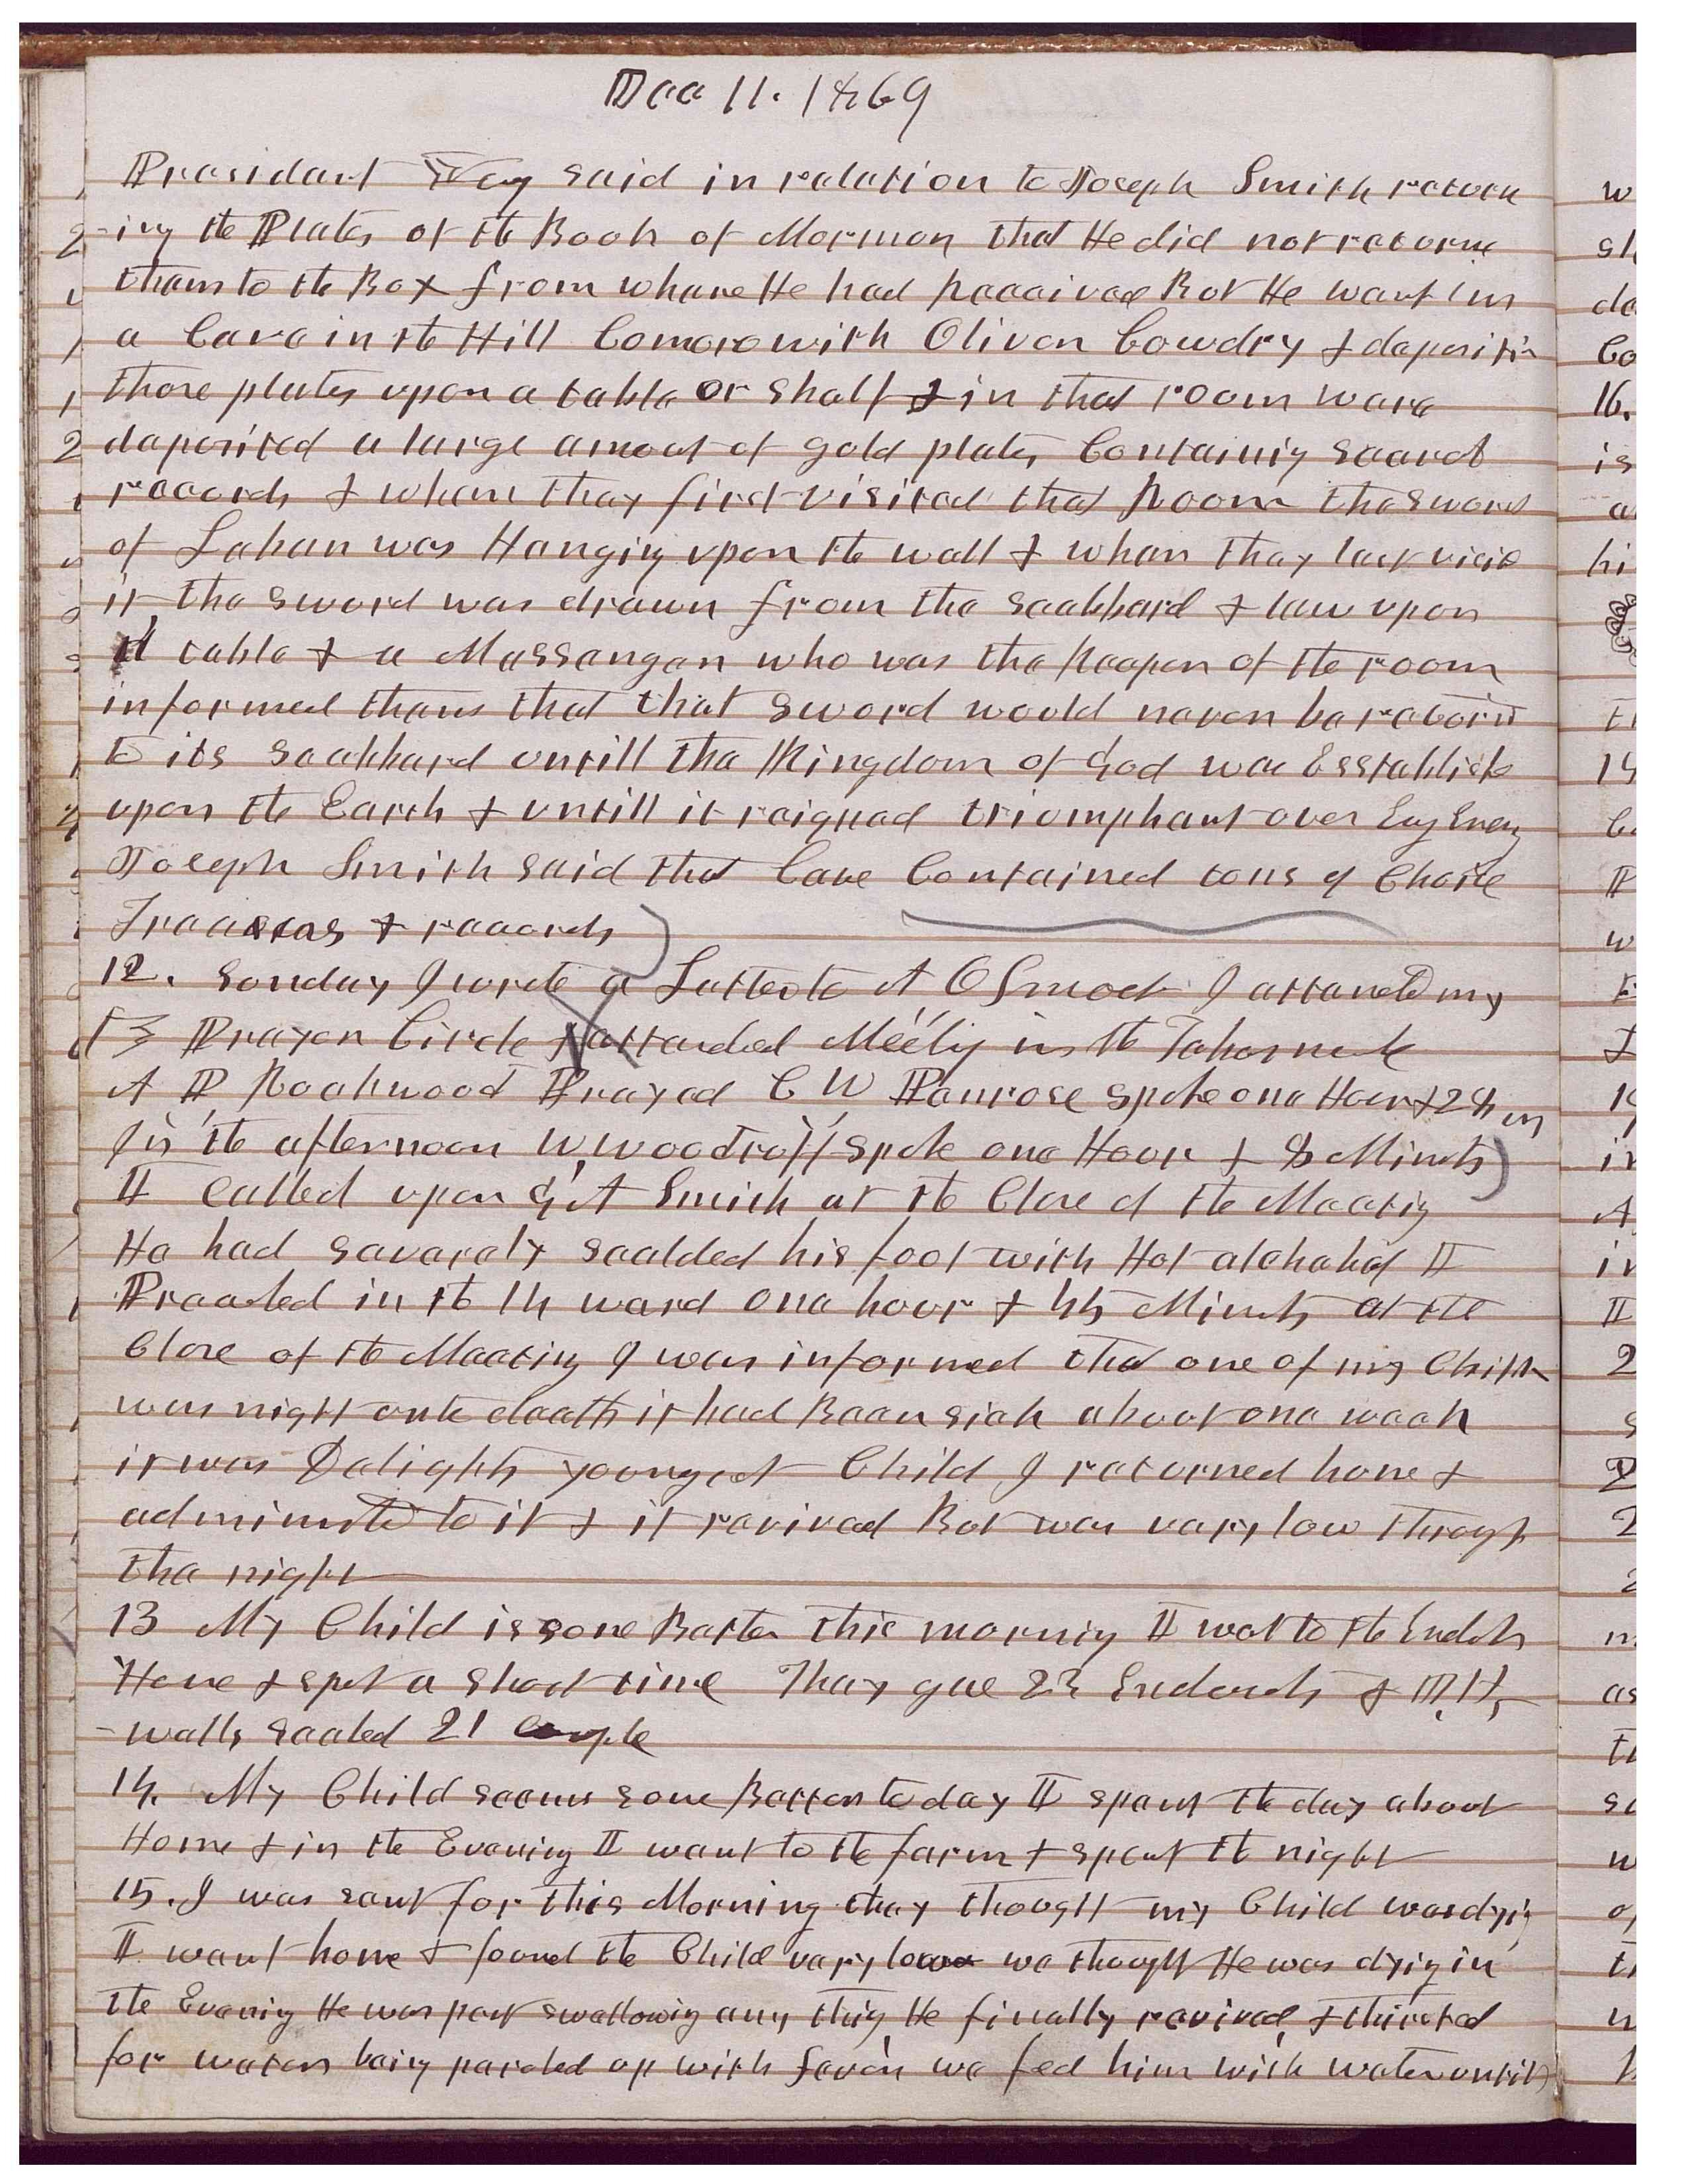 Dec 11. 1869
President Young said in relation to Joseph Smith return
-ing the Plates of the Book of Mormon that He did not return
them to the Box from whare He had Received But He went in
a Cave in the Hill Comoro with Oliver Cowdry & deposited
those plates upon a table or shelf & in that room were
deposited a large amout of gold plates Containing sacred
records & when they first visited that Room the sword
of Laban was Hanging upon the wall & when they last visited
it the sword was drawn from the scabbard & lain upon
a table & a Messenger who was the keeper of the room
informed them that that sword would never be returned
to its scabbard untill the Kingdom of God was Esstablished
upon the Earth & untill it reigned triumphant over Evry Enemy
Joseph Smith said that Cave Contained tons of Choice
Treasures & records
12. Sunday I wrote a Letter to A O Smoot I attended my
Prayer Circle & attended Meeting in the Tabernacle
A P Rockwood Prayed C W Penrose spoke one Hour & 24 m
In the afternoon W, Woodruff spoke one Hour & 8 Minuts
I Called upon G A Smith at the Close of the Meeting
He had severely scalded his foot with Hot alchahol I
Preached in the 14 ward one hour & 45 Minuts at the
Close of the Meeting I was informed that one of my Childn
was nigh unto death it had Been sick about one week
it was Delights youngest Child I returned home &
administered to it & it revived But was very low through
the night
13 My Child is some Better this morning I wot to the Endmt
House & spet a short time They gave 23 Endowmts & D. H,
-wells sealed 21 Couple
14. My Child seems some Better to day I spent the day about
Home & in the Evening I went to the farm & spent the night
15. I was sent for this Morning they thought my Child was dying
I went home & found the Child very low we thought He was dying in
the Evening He was past swallowing any thing He finally revived, & thirsted
for water being parched up with fever we fed him with water untill